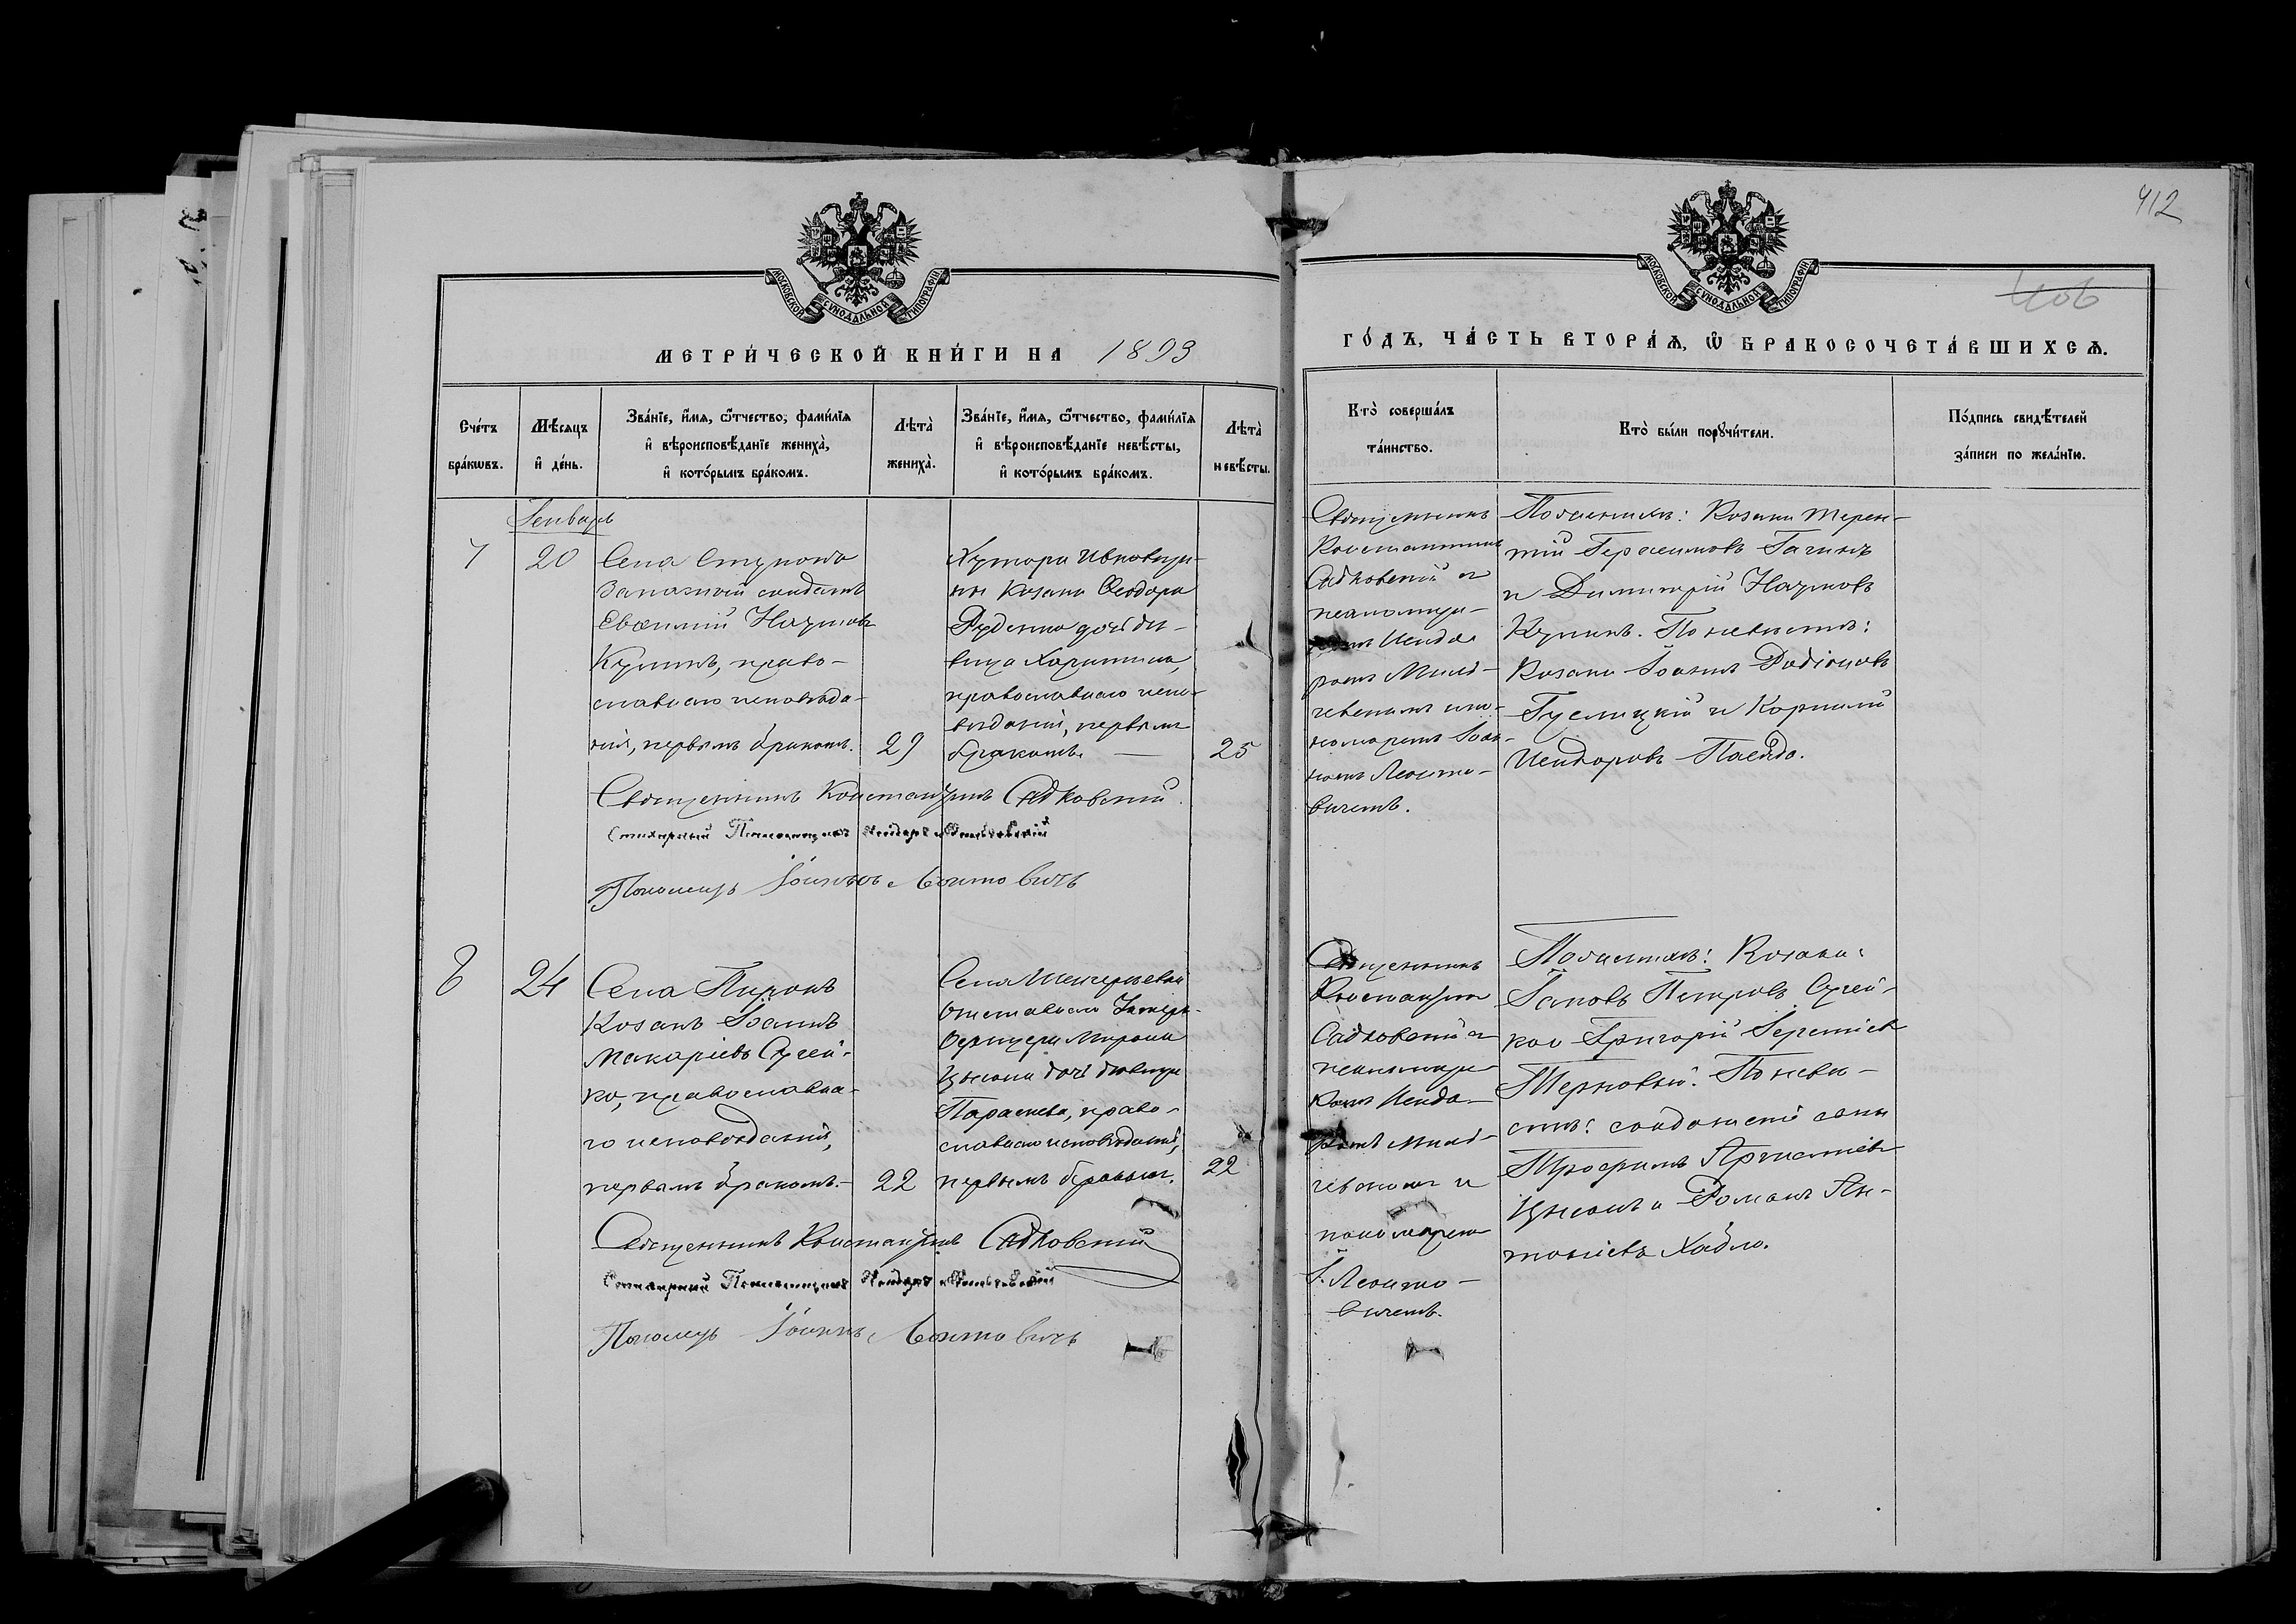 412
406
МОСКОВСКОЙ СѴНОДАЛЬНОЙ ТИПОГРАФІИ
МОСКОВСКОЙ СѴНОДАЛЬНОЙ ТИПОГРАФІИ
МЕТРИ́ЧЕСКОЙ КНИ́ГИ НА 1893
ГО́ДЪ, ЧА́СТЬ ВТОРА́Ѧ, Ѽ БРАКОСОЧЕТА́ВШИХСѦ.
Сче́тъ
бра́кѡвъ.
Мѣ́сяцъ
и҆ де́нь.
Зва́нїе, и҆́мѧ, ѻ҆́тчество, фами́лїѧ
и҆ вѣроисповѣ́данїе жениха̀,
и҆ кото́рымъ бра́комъ.
Лѣта̀
жениха̀.
Зва́нїе, и҆́мѧ, ѻ҆́тчество, фами́лїѧ
и҆ вѣроисповѣ́данїе невѣ́сты,
и҆ кото́рымъ бра́комъ.
Лѣта̀
невѣ́сты.
Кто̀ соверша́лъ
та́инство.
Кто̀ бы́ли порꙋчи́тели.
По́дпись свидѣ́телей
за́писи по жела́нїю.
Генварь
7
20
Села
Запасный солдатъ
Евѳимій Наумовъ
Кулинъ, право-
славнаго исповѣда-
нія, первымъ бракомъ.
29
Хутора
ны Козака Ѳеодора
Руденко дочь дѣ-
вица Харитина,
православнаго испо-
вѣданія, первымъ
бракомъ.
25
Священникъ
Константинъ
Садковскій съ
псаломщи-
комъ Исидо-
ромъ
и по-
номаремъ Іоан-
номъ Леонто-
вичемъ.
По женихѣ: Козаки Терен-
тій Герасимовъ
и Димитрій Наумовъ
Кулинъ. По невѣстѣ:
Козаки Іоаннъ Родіоновъ
и Корнилій
Исидоровъ
Священникъ Константинъ Садковскій.
Стихарный Псаломщикъ Исидоръ
Пономарь Іоаннъ Леонтовичъ
8
24
Села Пирокъ
Козакъ Іоаннъ
Макаріевъ Сулей-
ко, православна-
го исповѣданія,
первымъ бракомъ.
22
Села
Отставнаго Унтеръ-
Офицера Мирона
дочь дѣвица
Параскева, право-
славнаго исповѣданія,
первымъ бракомъ.
22
Священникъ
Константинъ
Садковскій съ
псаломщи-
комъ Исидо-
ромъ
и
пономаремъ
І. Леонто-
вичемъ.
По женихѣ: Козаки:
Іаковъ Петровъ Сулей-
ко и Григорій Іереміевъ
Терновый. По невѣ-
стѣ: солдатскіе сыны
Трофимъ
и Романъ Ан-
тоніевъ
Священникъ Константинъ Садковскій
Стихарный Псаломщикъ Исидоръ
Пономарь Іоаннъ Леонтовичъ